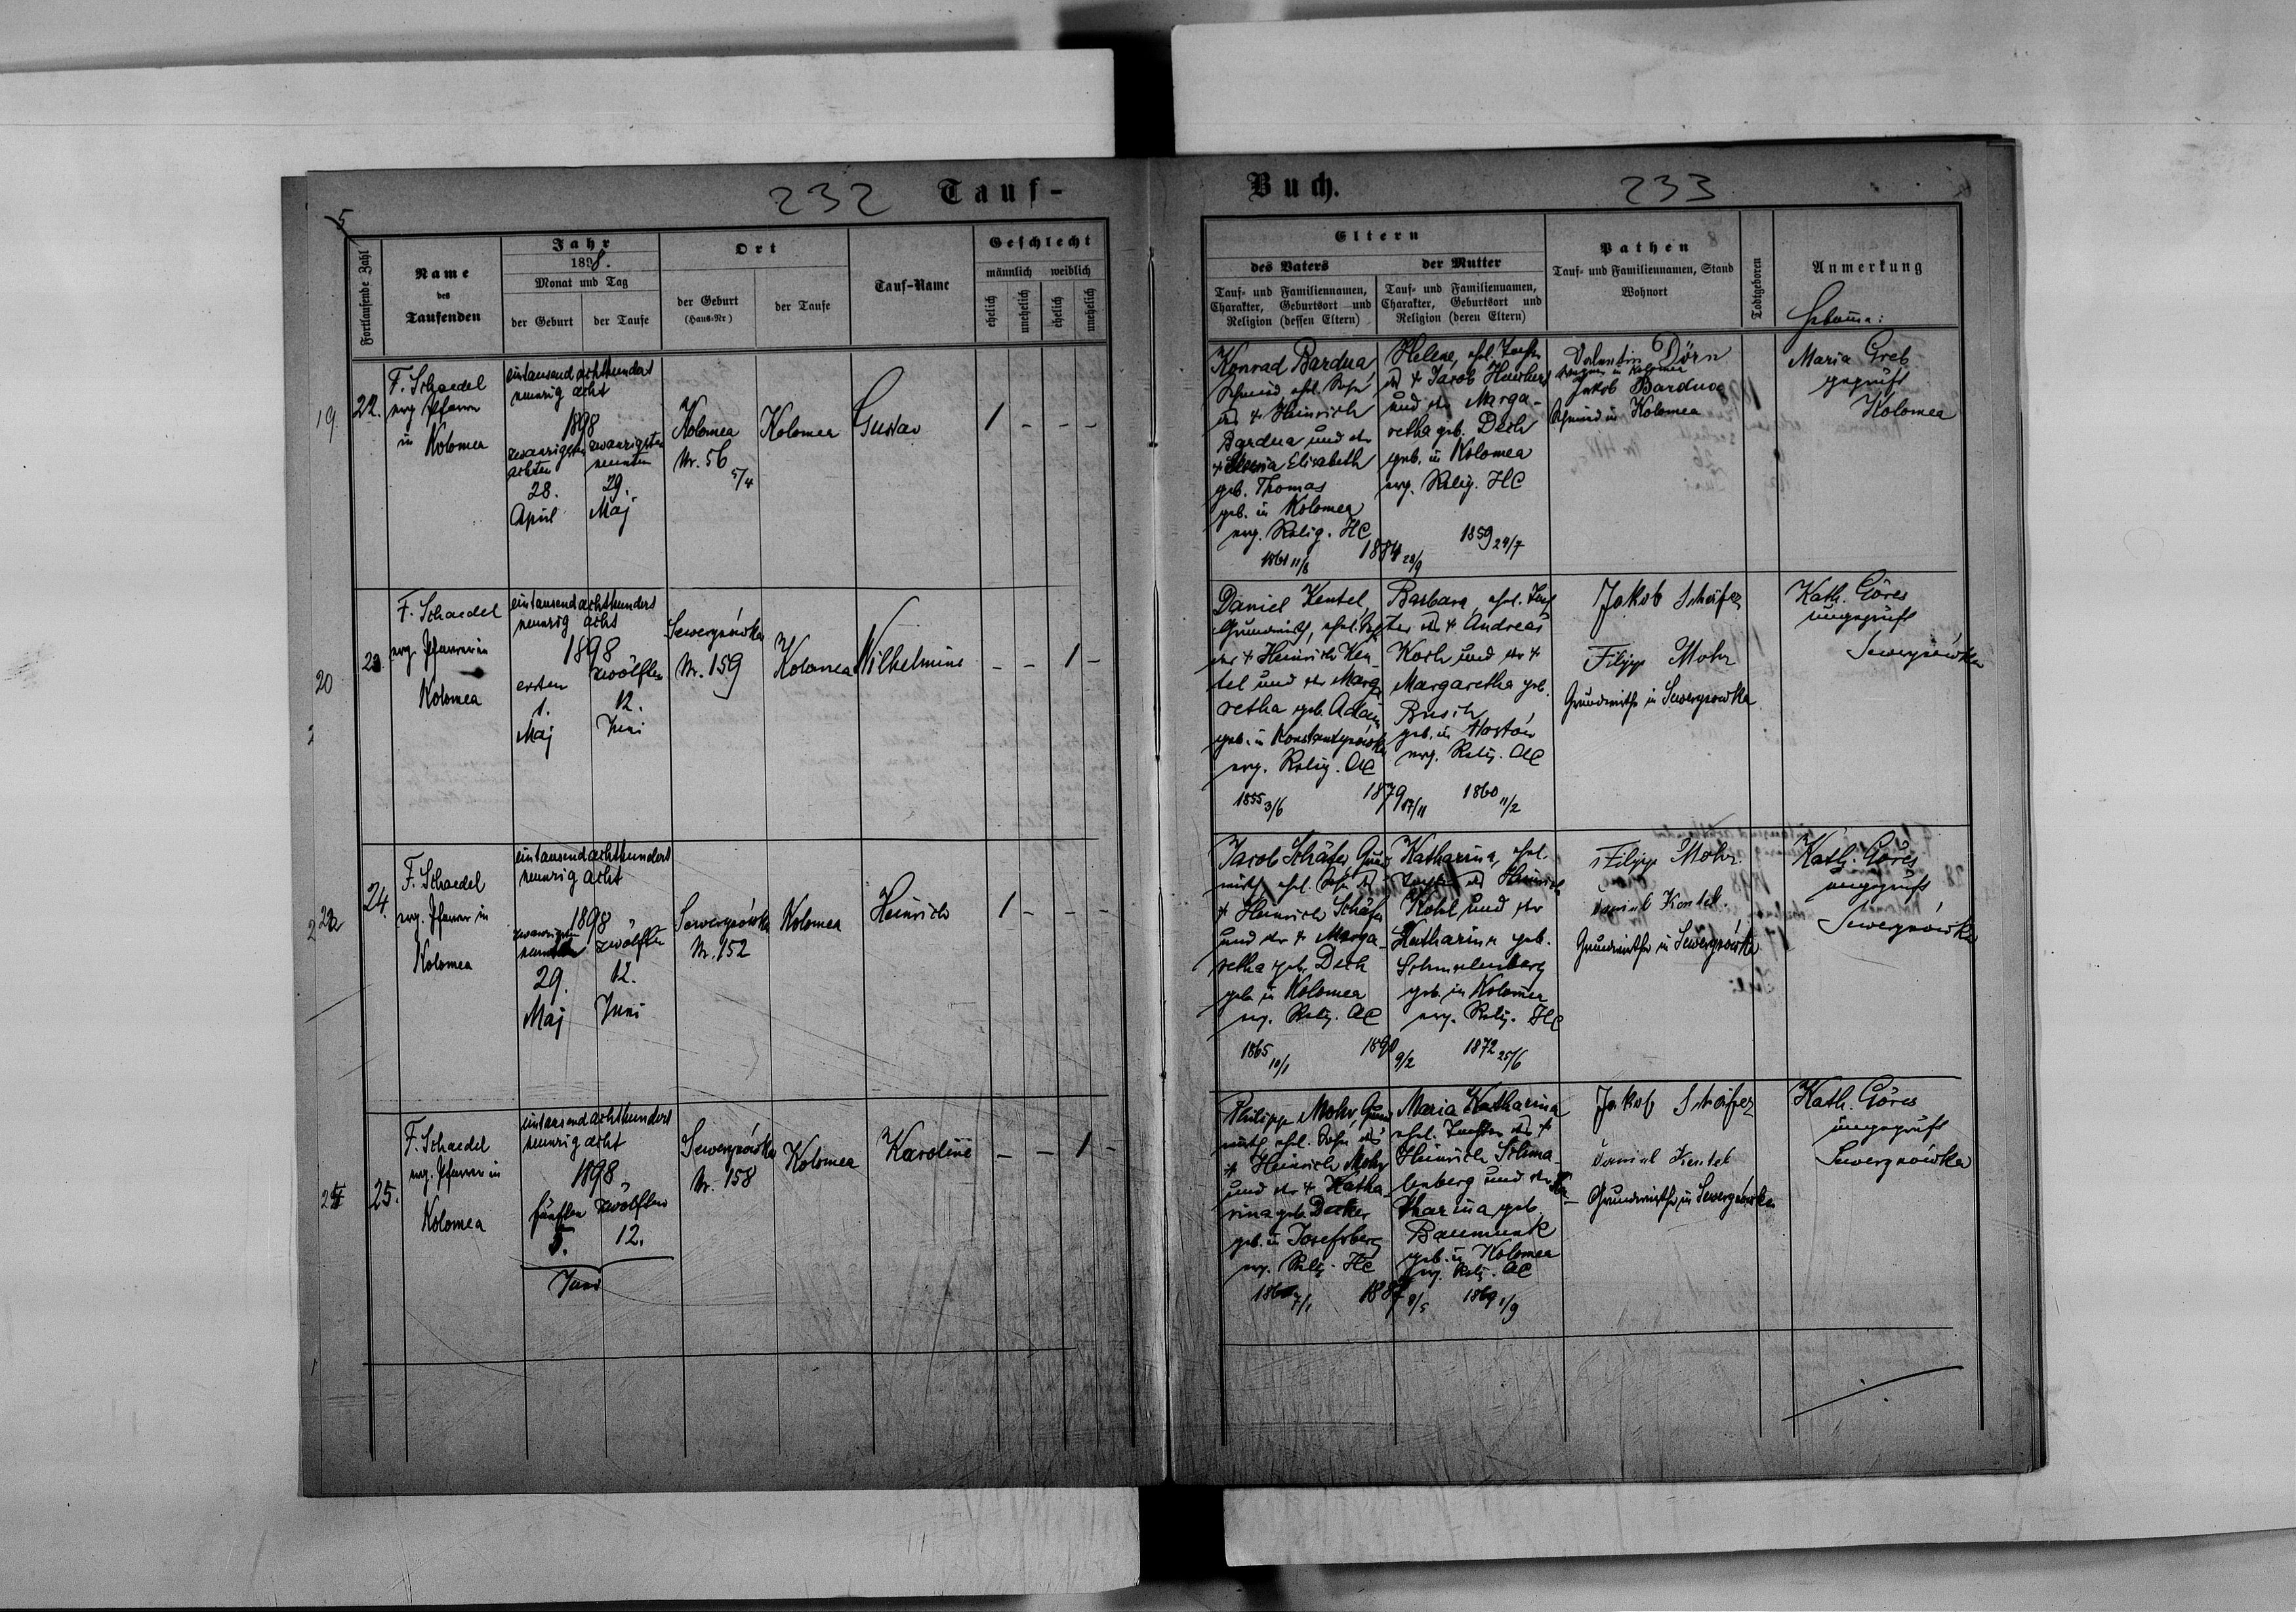 232
Tauf-
5
Fortlaufende Zahl
Name
des
Taufenden
Jahr
1898.
Monat und Tag
der Geburt
der Taufe
Ort
der Geburt
(Haus-Nr)
der Taufe
Tauf-Name
Geschlecht
männlich
weiblich
ehelich
unehelich
ehelich
unehelich
19
22.
F. Schaedel
evg. Pfarrer
in
Kolomea
eintausend achthundert
neunzig acht
1898
zwanzigsten
achten
28.
April
zwanzigsten
neunten
29.
Maj
Kolomea
Nr. 56
5/4
Kolomea
Gustav
1 - - -
20
23.
F. Schaedel
evg. Pfarrer in
Kolomea
eintausend achthundert
neunzig acht
1898
ersten
1.
Maj
zwölften
12.
Juni
Sewerynówka
Nr. 159
Kolomea
Wilhelmine
- - 1 -
24.
F. Schaedel
evg. Pfarrer in
Kolomea
eintausend achthundert
neunzig acht
1898
zwanzigsten
neunten
29.
Maj
zwölften
12.
Juni
Sewerynówka
Nr. 152
Kolomea
Heinrich
1 - - -
25.
F. Schaedel
evg. Pfarrer in
Kolomea
eintausend achthundert
neunzig acht
1898
fünften
5.
zwölften
12.
Juni
Sewerynówka
Nr. 158
Kolomea
Karoline
- - 1 -
Buch.
233
Eltern
des Vaters
Tauf- und Familiennamen,
Charakter, Geburtsort und
Religion (dessen Eltern)
der Mutter
Tauf- und Familiennamen,
Charakter, Geburtsort und
Religion (deren Eltern)
Pathen
Tauf- und Familiennamen, Stand
Wohnort
Todtgeboren
Anmerkung
Hebamme:
Konrad Bardua
Schmied, ehl. Sohn
des + Heinrich
Bardua und der
Elisabeth
geb. Thomas
geb. in Kolomea
evg. Relig. HC
11/8
1884 28/9
Helene, ehl. Tochter
des + Jacob
und der Marga-
retha geb. Dech
geb. in Kolomea
evg. Relig. HC
1859 24/7
Valentin Dörn
in Kolomea
Jakob Bardua
Schmied in Kolomea
Maria Greb
geprüft
Kolomea
Daniel Kentel,
Grundwirth, ehl. Sohn
des + Heinrich Ken-
tel und der Marga
retha geb. Adam
geb. in Konstantynówka
evg. Relig. AC
1855 3/6
1879 17/11
Barbara, ehl. Toch
ter des + Andreas
Koch und der +
Margaretha geb.
Busch
geb. in
evg. Relig. AC
1860 11/2
Jakob Schäfer
Filipp Mohr
Grundwirthe in Sewerynowka
Kath. Göres
ungeprüft
Sewerynówka
Jacob Schäfer Grund
wirth ehl. Sohn des
+ Heinrich Schäfer
und der + Marga-
retha geb. Dech
geb. in Kolomea
evg. Relig. AC
1865 10/1
1890 9/2
Katharina, ehl.
Tochter des Heinrich
Kohl und der
Katharina geb.
geb. in Kolomea
evg. Relig. HC
1872 25/6
Filipp Mohr
Daniel Kentel.
Grundwirthe in Sewerynówka
Kath. Göres
ungeprüft
Sewerynówka
Philipp Mohr, Grund
wirth ehl. Sohn des
+ Heinrich Mohr
und der + Katha-
rina geb. Decker
geb. in Josefsberg
evg. Relig. HC
7/1
1887 8/5
Maria Katharina
ehl. Tochter des +
Heinrich Schma-
lenberg und der Ka-
tharina geb.
Baumunk
geb. in Kolomea
evg. Relig. AC
1869 1/9
Jakob Schäfer
Daniel Kentel
Grundwirthe in Sewerynówka
Kath. Göres
ungeprüft
Sewerynówka